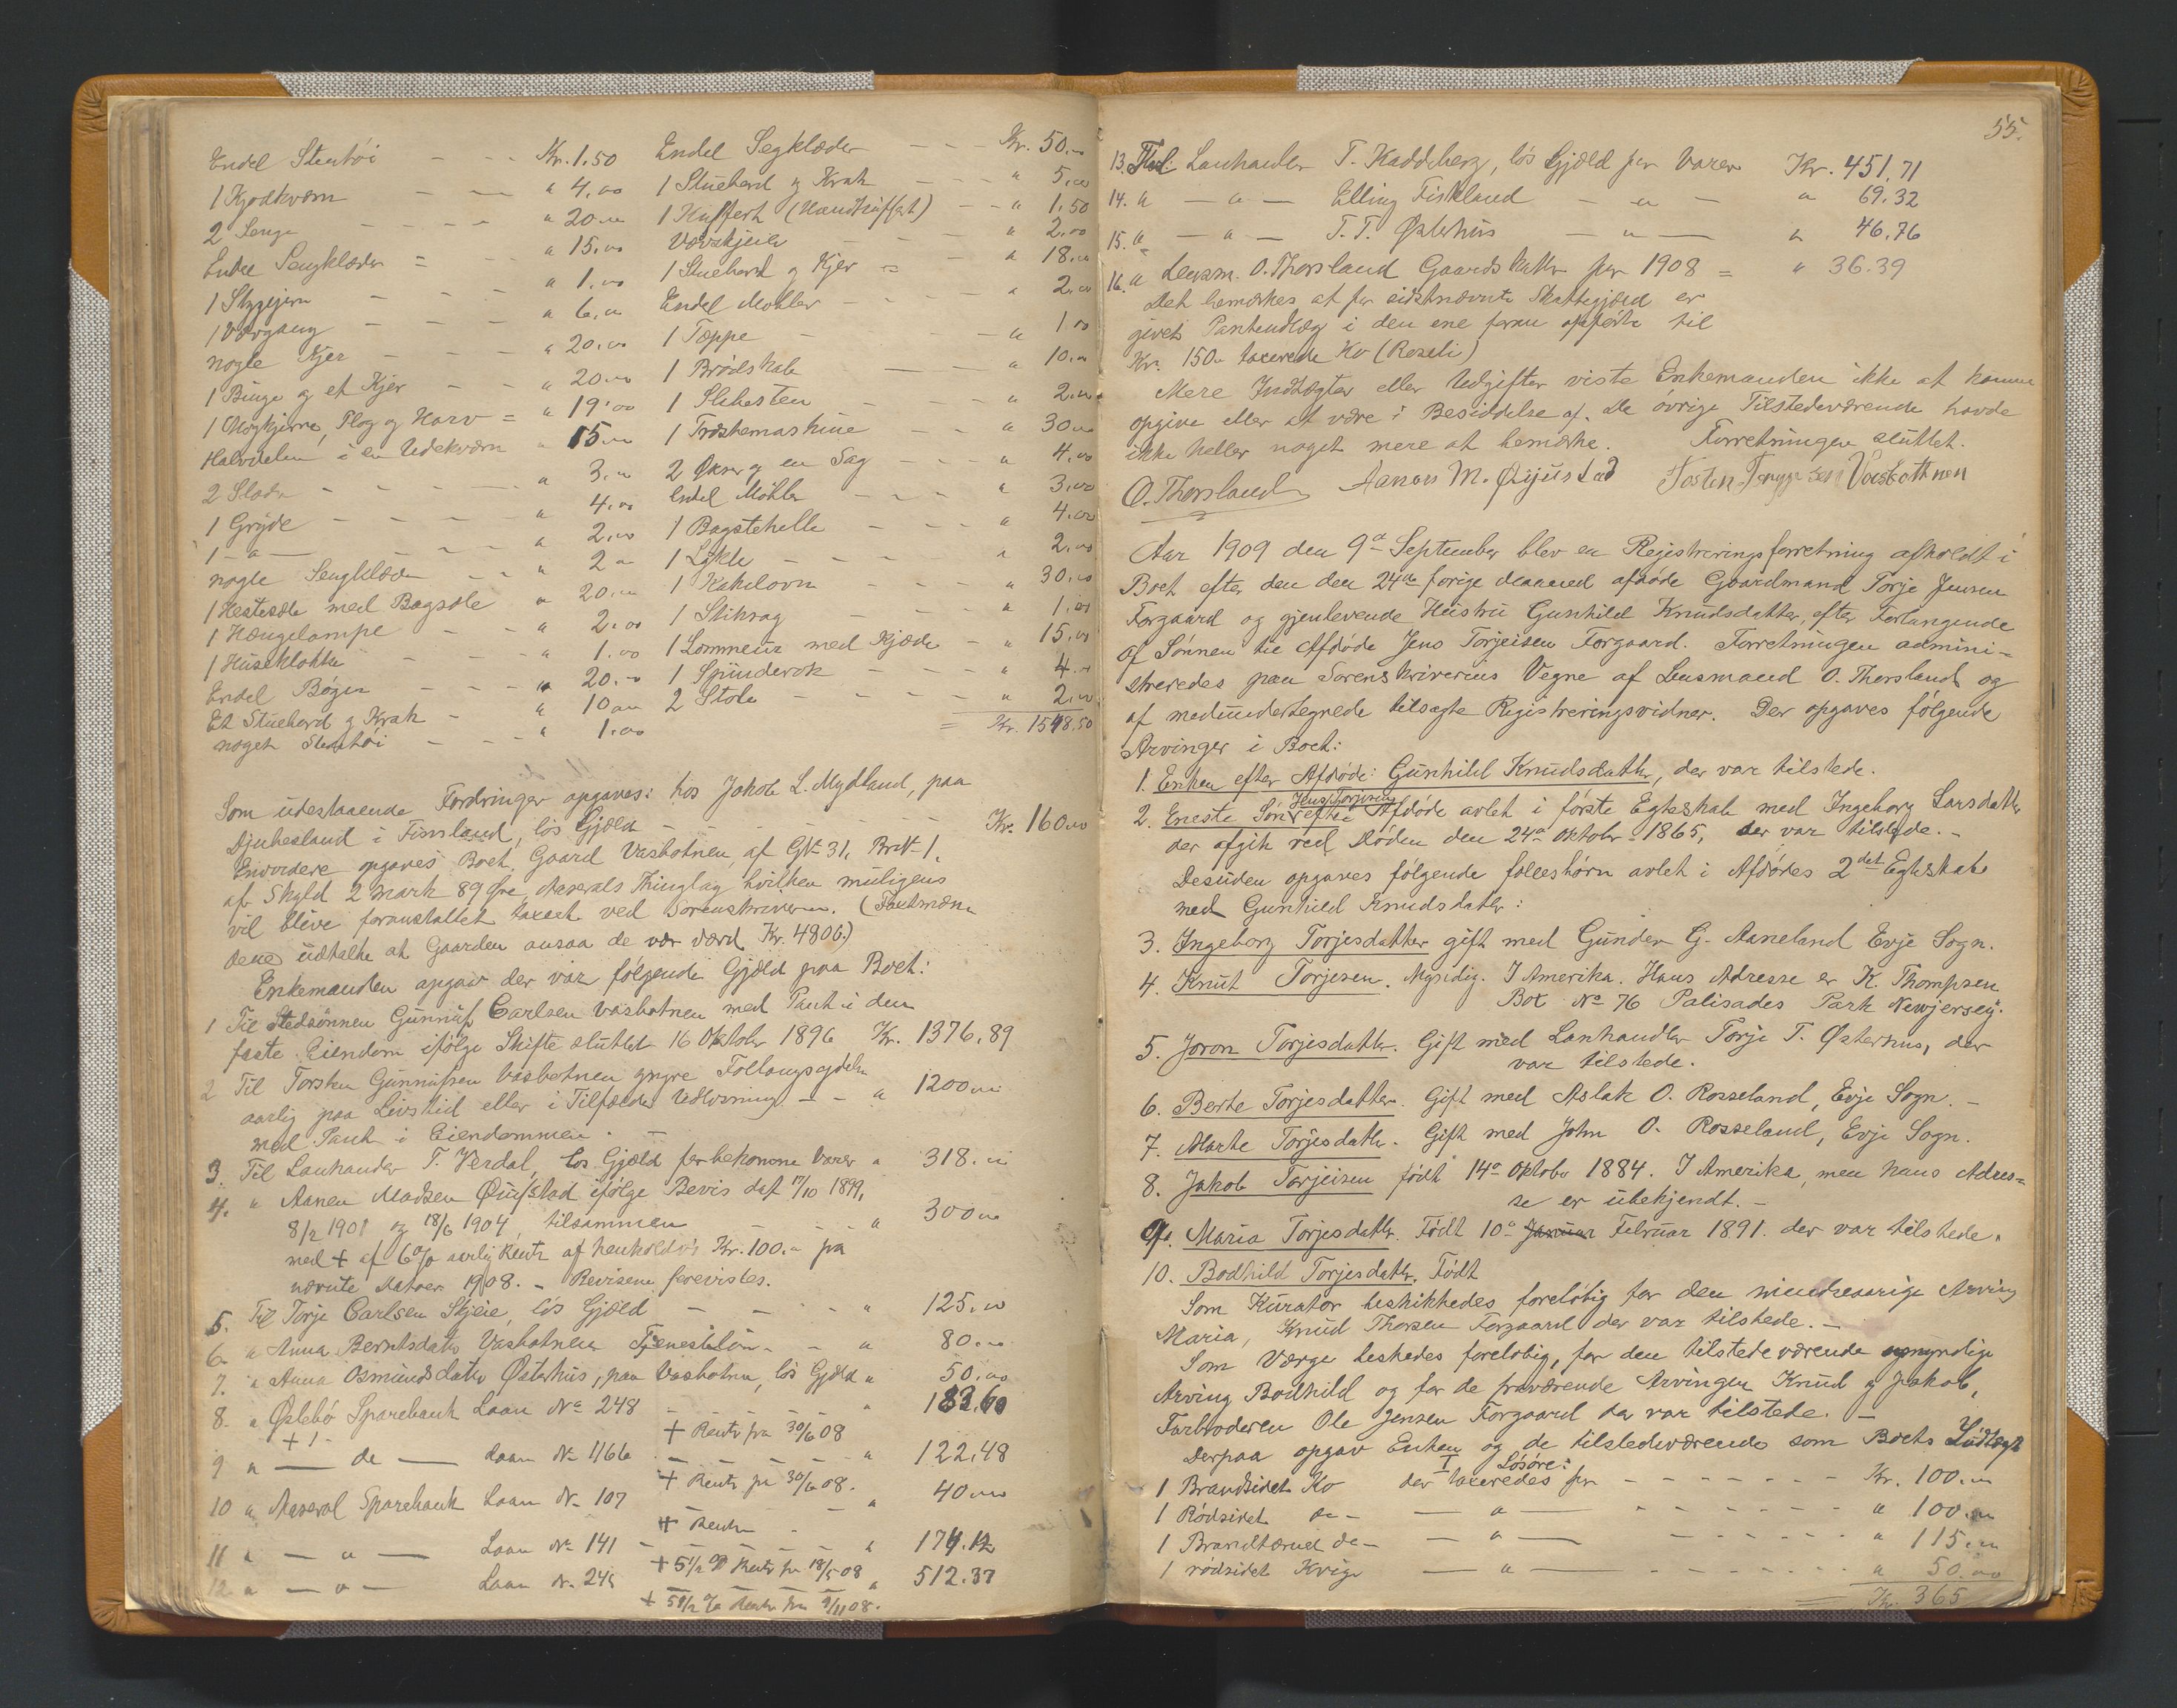 Endel Stentøi - - - Kr. 1.50
1 Kjødkværn - - " 4.00
2 Senge - - - " 20.00
Endel Sengklæder = " 15.00
1 Strygejern - - - " 1.00
1 Vævgang - - - " 6.00
nogle Kjer - - - " 20.00
1 Binge og et Kjer - - " 20.00
1 Møgkjerre, Plog og Harv = " 19.00
Halvdelen i en Udekværn " 15.00
2 Slæder - - - - " 3.00
1 Gryde - - - - " 4.00
1 - " - - - - " 2.00
nogle Sengklæder - - " 2.00
1 Hestesæle med Bagsæle " 20.00
1 Hængelampe - - " 2.00
1 Husklokke - - - " 1.00
Endel Bøger - - - " 20.00
Et Stuebord og Krak - " 10.00
noget Stentøi - - - " 1.00
Endel Segklæder - - - Kr. 50.00
1 Stuebord og Krak - - - " 5.00
1 Kuffert (Haandkuffert) - - " 1.50
Vævskjeer - - " 2.00
1 Stuebord og Kjer = " 18.00
Endel Møbler - - - " 2.00
1 Tæppe - - " 1.00
1 Brødskab - - " 10.00
1 Slibesten - - " 2.00
1 Træskemaskine - - " 30.00
2 Økser og en Sag - - - " 4.00
Endel Møbler - - - " 3.00
1 Bagstehelle - - - " 4.00
1 Lykte - - - " 2.00
1 Kakelovn - - - - " 30.00
1 Stiksag - - " 1.00
1 Lommeur med Kjæde - " 15.00
1 Spinderok - - - " 4.00
2 Stole - - - - " 2.00
= Kr. 1548.50
Som udestaaende Fordringer opgaves: hos Jakob L. Mydland, paa
Djubesland i Finsland, løs Gjæld - - - - - - Kr. 160.00
Envidere opgaves Boet, Gaard Vasbotnen, af GN- 31, BrN- 1,
af Skyld 2 mark 89 Øre, Aaserals Thinglag hvilken muligens
vil blive foranstaltet taxeret ved Sorenskriveren. (Taxtmæn-
dene udtalte at Gaarden ansaa de vær værd Kr. 4806.)
Enkemanden opgav der var følgende Gjæld paa Boet:
1 Til Stedsønnen Gunnuf Carlsen Vasbotnen med Pant i den
faste Eiendom ifølge Skifte sluttet 16 Oktober 1896 Kr. 1376.89
2 Til Torsten Gunnufsen Vasbotnen yngre Follaugsydelse
aarlig paa Livstid eller i Tilfælde Udløsning - - " 1200.00
med Pant i Eiendommen. -
3. Til Lanhandler T. Verdal, løs Gjæld for bekomne Varer " 318.00
4. " Aanen Madsen Øuystad ifølge Bevis dat 17/10 1899,
8/2 1901 og 18/6 1904, tilsammen - - - " 300.00
med + af 6% aarlig Rente af henholdsvis Kr. 100.00 fra
nævnte Datoer 1908. - Beviserne forevistes.
5. Til Torje Carlsen Skjeie, løs Gjæld - - - " 125.00
6. " Anna Berntsdatr Vasbotnen Tjenesteløn - - " 80.00
7. " Anna Osmundsdatr Østerhus, paa Vasbotnen, løs Gjæld " 50.00
8. " Øslebø Sparebank Laan No 248 - - - - " 183.60
+ Rente fra 30/6 08
9 " - do - Laan No 1166 - - - - - " 122.48
+ Rente fra 30/6 08.
10 " Aaseral Sparebank Laan No 107 " 40.00
+ Rente - -
11 " - " - Laan No 141 - - - - - - " 174.12
+ 5 1/2 % Rente fra 18/5 08
12 " - " - Laan No 245 " 512.37
+ 5 1/2 % Rente fra 9/11 08.
55.
13. Til Lanhandler T. Kaddeberg, løs Gjæld for Varer Kr. 451.71
14. " - " - Elling Fiskland - " - " 69.32
15. " - " - T. T. Østerhus - " - " 46.76
16. " Lensm. O. Thorsland Gaardskatter for 1908 = " 36.39
Det bemærkes at for sidstnævnte Skattegjæld er
givet Panteudlæg i den ene foran opførte til
Kr. 150.00 taxerede Ko (Roseli)
Mere Indtægter eller Udgifter viste Enkemanden ikke at kunne
opgive eller at være i Besiddelse af. De øvrige Tilstedeværende havde
ikke heller noget mere at bemærke. Forretningen sluttet.
O. Thorsland Aanon M. Øyustad Tosten Vasbothnen
Aar 1909 den 9de September blev en Registreringsforretning afholdt i
Boet efter den den 24de forige Maaned afdøde Gaardmand Torje Jensen
Forgaard og gjenlevende Hustru Gunhild Knudsdatter, efter Forlangende
af Sønnen til Afdøde Jens Torjeisen Forgaard. Forretningen admini-
streredes paa Sorenskriverens Vegne af Lensmand O. Thorsland og
af medundertegnede tilsagte Registreringsvidner. Der opgaves følgende
Arvinger i Boet:
1. Enken efter Afdøde: Gunhild Knudsdatter, der var tilstede.
2. Eneste Søn Jens Torjesen efter Afdøde avlet i første Egteskab med Ingeborg Larsdatter
der afgik ved Døden den 24de Oktober 1865, der var tilstede. -
Desuden opgaves følgende fællesbørn avlet i Afdødes 2det Egteskab
med Gunhild Knudsdatter:
3. Ingeborg Torjesdatter gift med Gunder G. Aaneland Evje Sogn.
4. Knut Torjesen. Myndig. I Amerika. Hans Adresse er K. Thompsen
Box No 76 Palisades Park Newjersey.
5. Joron Torjesdatter. Gift med Lanhandler Torje T. Østerhus, der
var tilstede.
6. Berte Torjesdatter. Gift med Aslak O. Rosseland, Evje Sogn. -
7. Marte Torjesdatter. Gift med John O. Rosseland, Evje Sogn.
8. Jakob Torjeisen født 14de Oktober 1884. I Amerika, men hans Adres-
se er ubekjendt. -
9. Maria Torjesdatter. Født 10de Januar Februar 1891. der var tilstede.
10. Bodhild Torjesdatter. Født
Som Kurator beskikkedes foreløbig for den mindreaarige Arving
Maria, Knud Thorsen Forgaard der var tilstede. -
Som Værge beskedes foreløbig, for den tilstedeværende umyndige
Arving Bodhild og for de fraværende Arvinger Knud og Jakob,
Farbroderen Ole Jensen Forgaard der var tilstede. -
Derpaa opgav Enken og de tilstedeværende som Boets Indtægt
I Løsøre:
1 Brandsidet Ko der taxeredes for - - - - - - - Kr. 100.00
1 Rødsidet do - - " - - - - - - - - " 100.00
1 Brandtærnet do - - " - - - - - - - " 115.00
1 rødsidet Kvige - " - - - - - - - " 50.00
Kr. 365